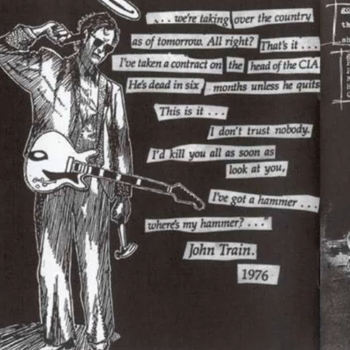 ... we're taking over the country
as of tomorrow. All right? That's it ...
I've taken a contract on the head of the CIA
He's dead in six months unless he quits
This is it ...
I don't trust nobody.
I'd kill you all as soon as
look at you,
I've got a hammer ...
where's my hammer? ..."
John Train.
1976